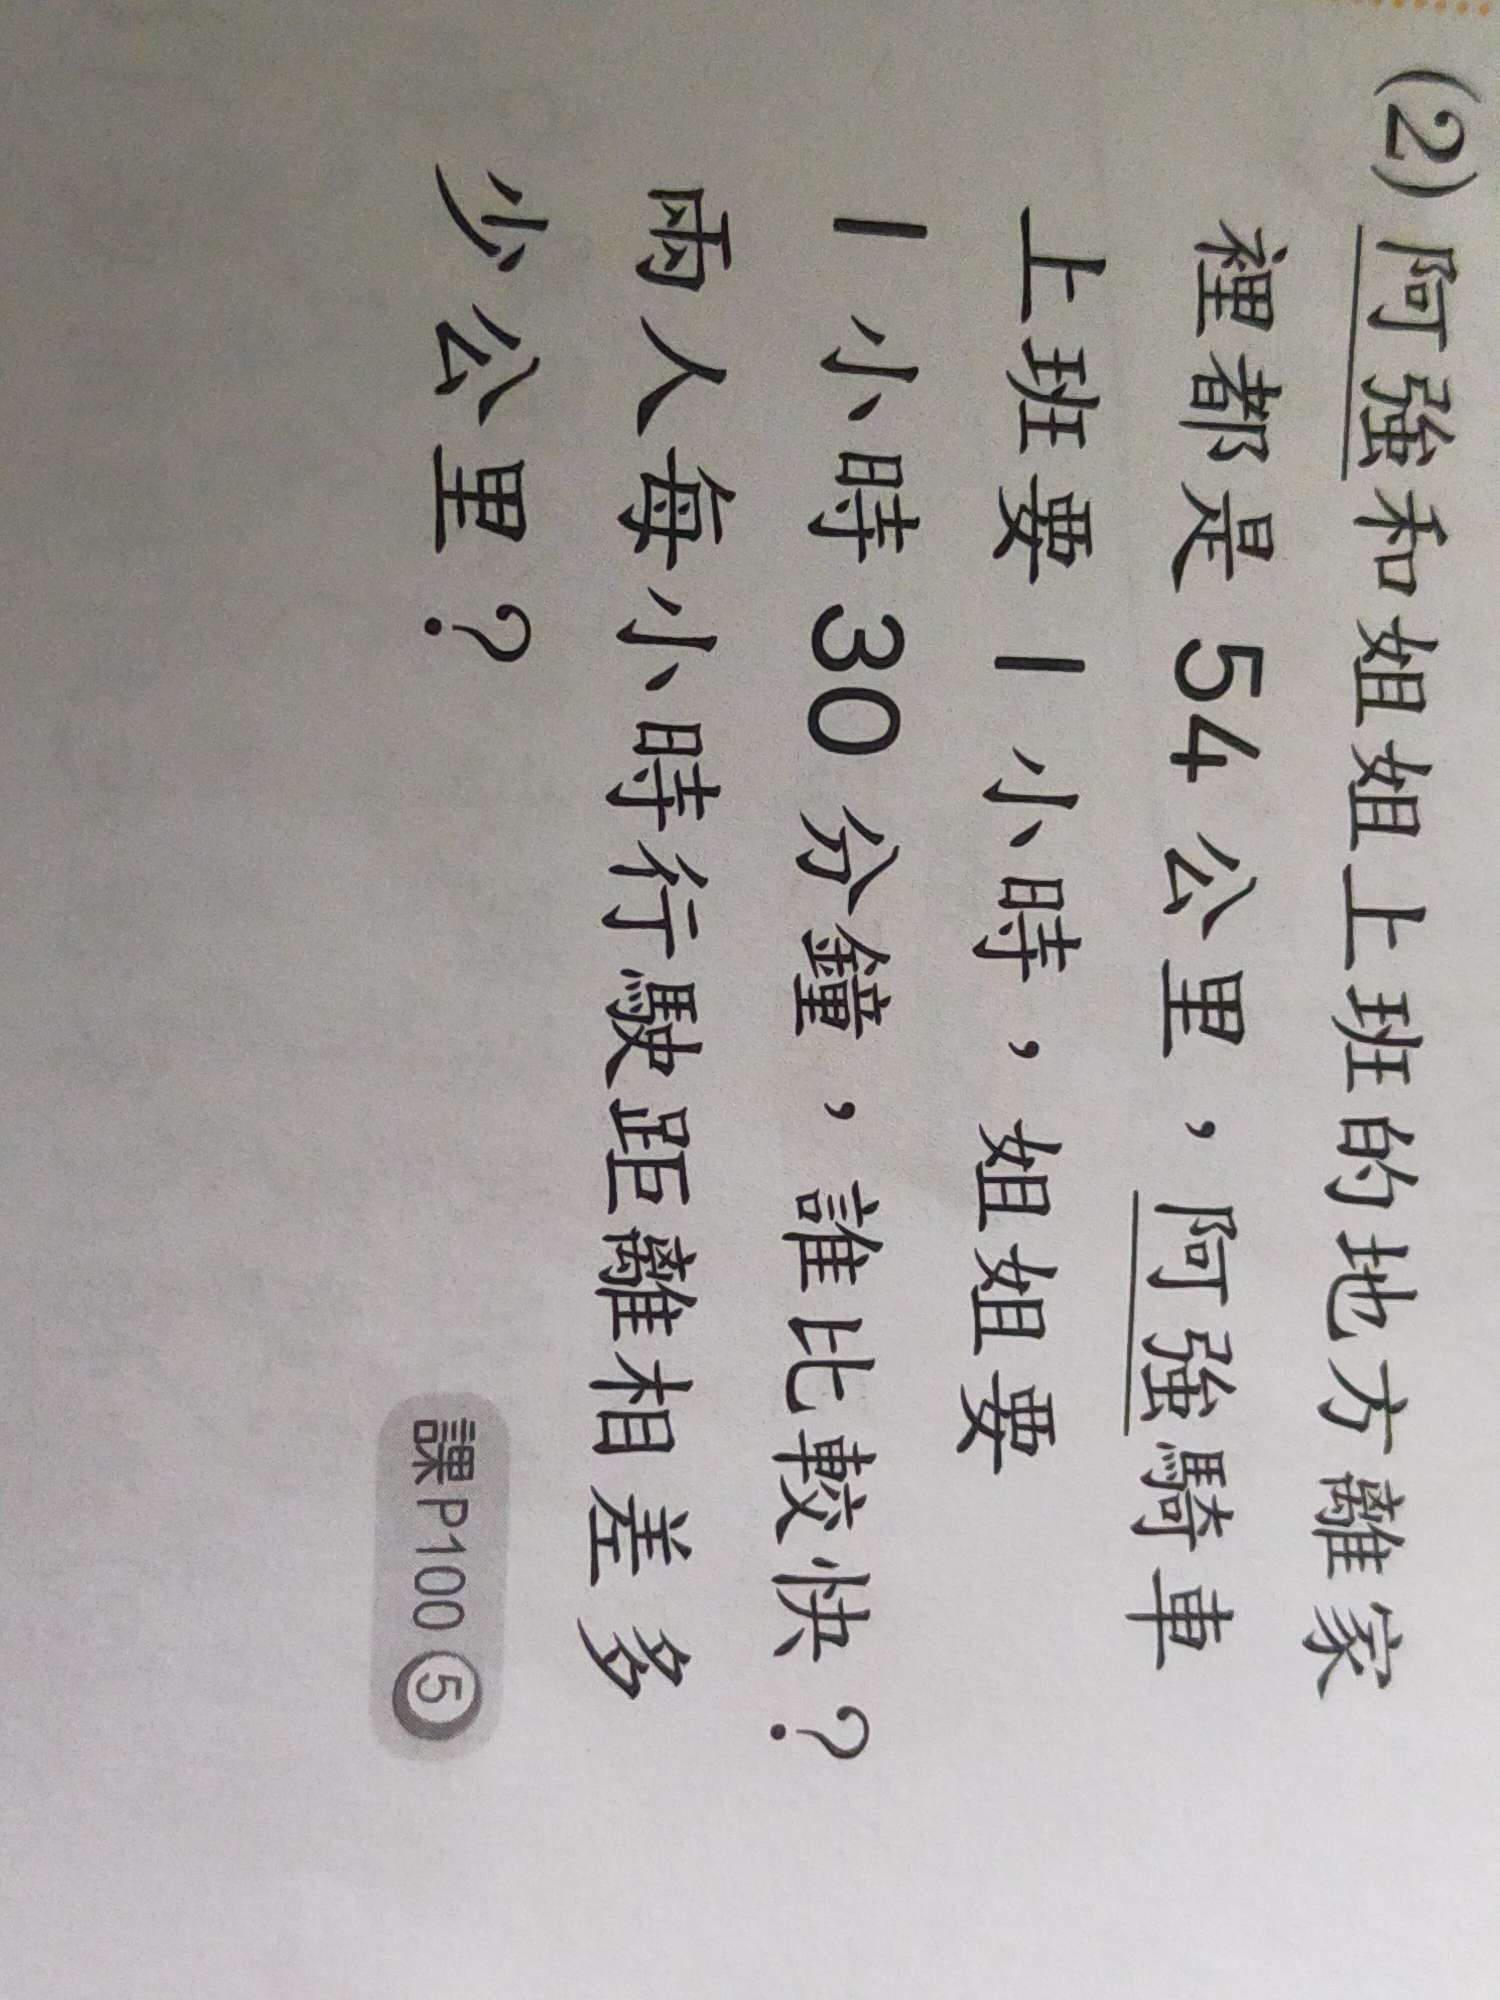 (2) 阿強和姐姐上班的地方離家
裡都是 54 公里，阿強騎車
上班要 1 小時，姐姐要
1 小時 30 分鐘，誰比較快？
兩人每小時行駛距離相差多
少公里？
課P100 5